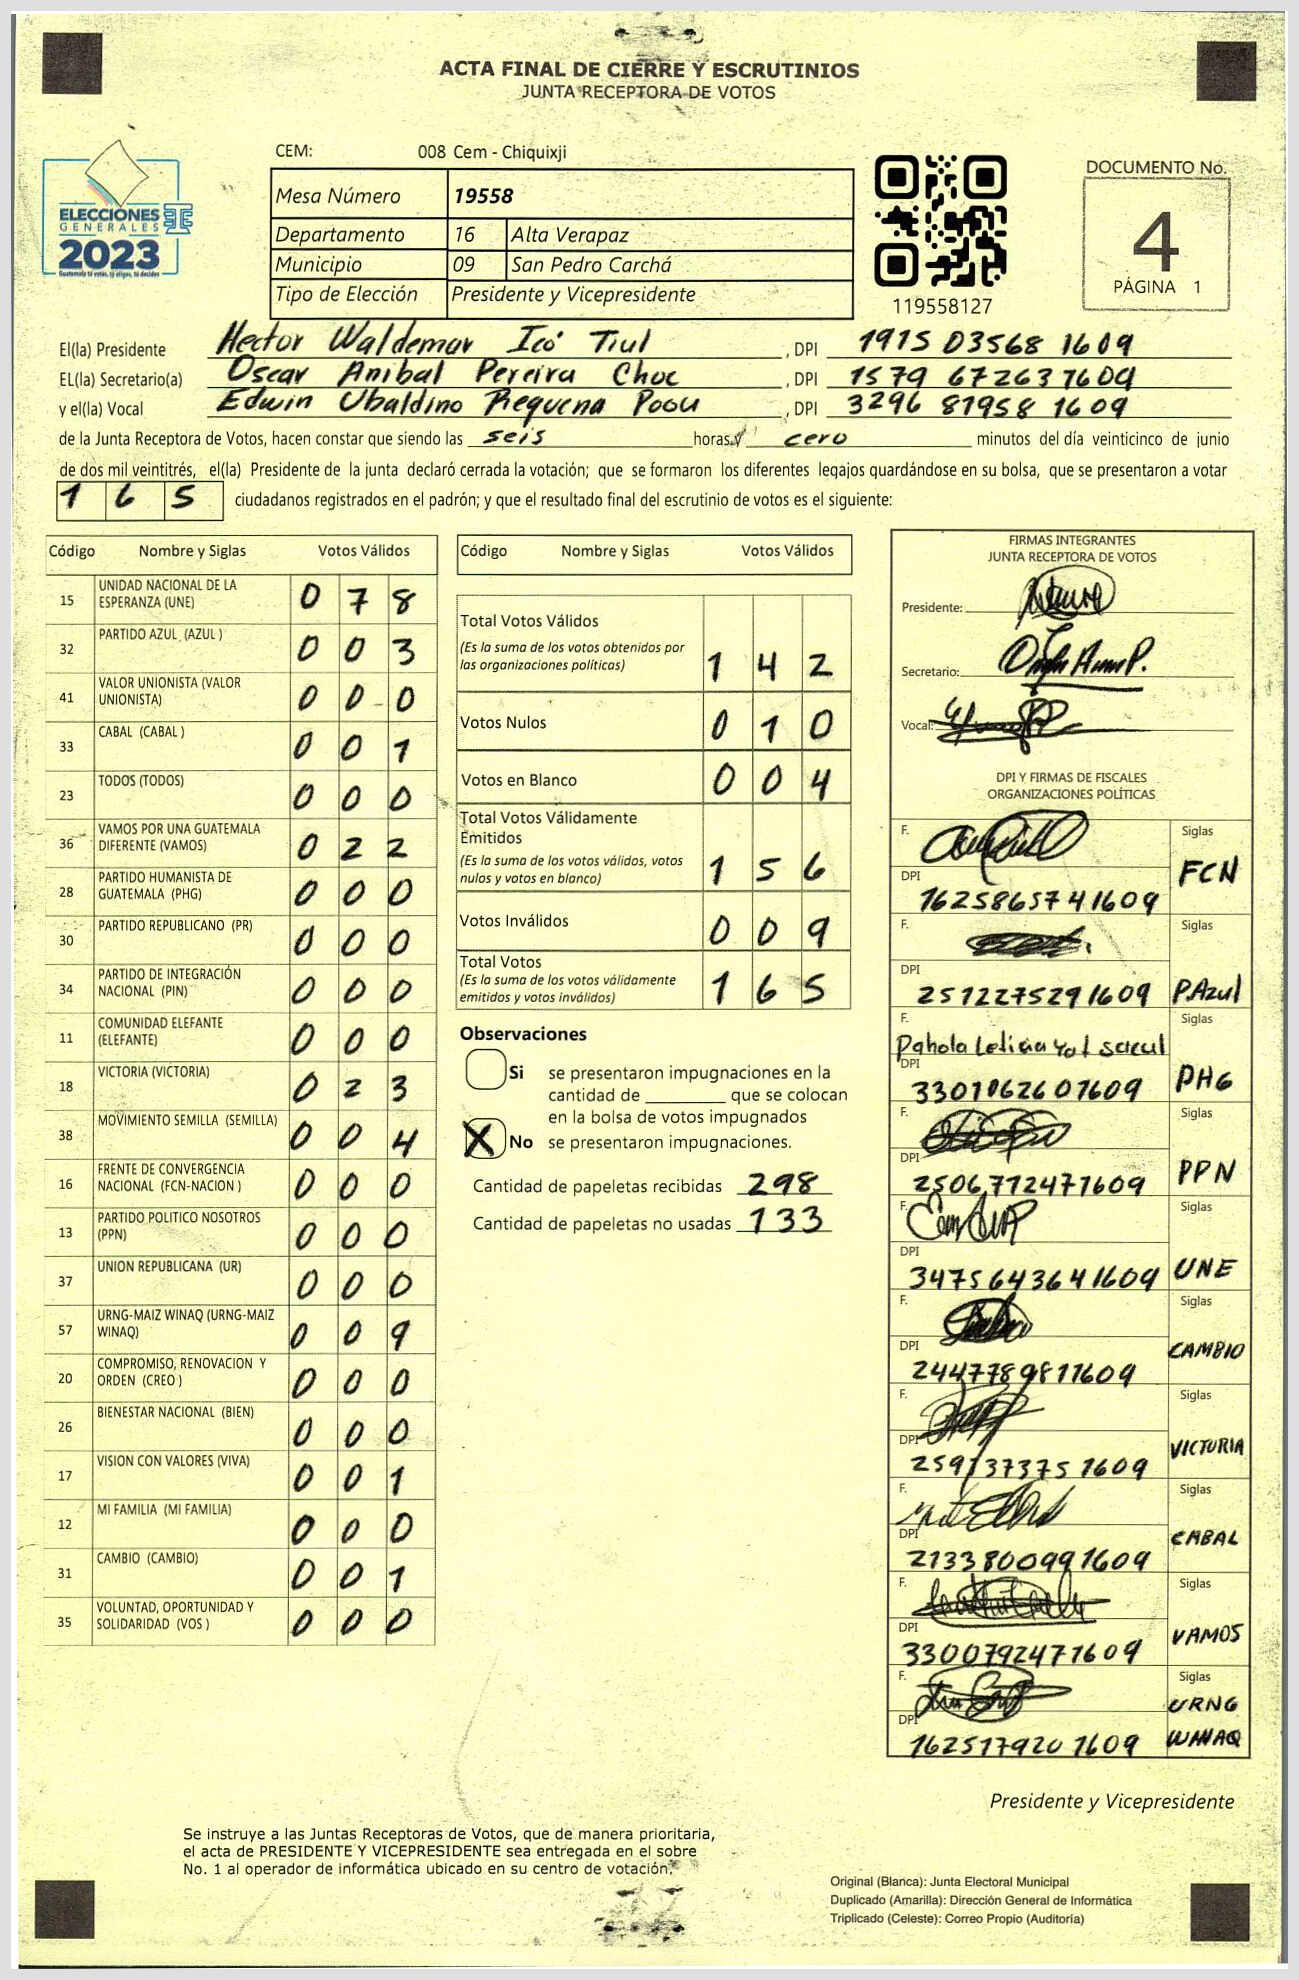 ACTA FINAL DE CIERRE Y ESCRUTINIOS
JUNTA RECEPTORA DE VOTOS
CEM: 008 Cem - Chiquixji
ELECCIONES
GENERALES
2023
Guatemala tú votas, tú eliges, tú decides
Mesa Número 19558
Departamento 16 Alta Verapaz
Municipio 09 San Pedro Carchá
Tipo de Elección Presidente y Vicepresidente
119558127
DOCUMENTO No.
4
PÁGINA 1
El(la) Presidente Hector Waldemar Icó Tiul , DPI 1915 03568 1609
EL(la) Secretario(a) Oscar Anibal Pereira Choc , DPI 1579 67263 1609
y el(la) Vocal Edwin Ubaldino Requena Poou , DPI 3296 81958 1609
de la Junta Receptora de Votos, hacen constar que siendo las seis horas y cero minutos del día veinticinco de junio
de dos mil veintitrés, el(la) Presidente de la junta declaró cerrada la votación; que se formaron los diferentes legajos guardándose en su bolsa, que se presentaron a votar
165 ciudadanos registrados en el padrón; y que el resultado final del escrutinio de votos es el siguiente:
Código Nombre y Siglas Votos Válidos
15 UNIDAD NACIONAL DE LA ESPERANZA (UNE) 0 7 8
32 PARTIDO AZUL (AZUL ) 0 0 3
41 VALOR UNIONISTA (VALOR UNIONISTA) 0 0 0
33 CABAL (CABAL ) 0 0 1
23 TODOS (TODOS) 0 0 0
36 VAMOS POR UNA GUATEMALA DIFERENTE (VAMOS) 0 2 2
28 PARTIDO HUMANISTA DE GUATEMALA (PHG) 0 0 0
30 PARTIDO REPUBLICANO (PR) 0 0 0
34 PARTIDO DE INTEGRACIÓN NACIONAL (PIN) 0 0 0
11 COMUNIDAD ELEFANTE (ELEFANTE) 0 0 0
18 VICTORIA (VICTORIA) 0 2 3
38 MOVIMIENTO SEMILLA (SEMILLA) 0 0 4
16 FRENTE DE CONVERGENCIA NACIONAL (FCN-NACION ) 0 0 0
13 PARTIDO POLITICO NOSOTROS (PPN) 0 0 0
37 UNION REPUBLICANA (UR) 0 0 0
57 URNG-MAIZ WINAQ (URNG-MAIZ WINAQ) 0 0 9
20 COMPROMISO, RENOVACION Y ORDEN (CREO ) 0 0 0
26 BIENESTAR NACIONAL (BIEN) 0 0 0
17 VISION CON VALORES (VIVA) 0 0 1
12 MI FAMILIA (MI FAMILIA) 0 0 0
31 CAMBIO (CAMBIO) 0 0 1
35 VOLUNTAD, OPORTUNIDAD Y SOLIDARIDAD (VOS ) 0 0 0
Código Nombre y Siglas Votos Válidos
Total Votos Válidos
(Es la suma de los votos obtenidos por
las organizaciones políticas) 1 4 2
Votos Nulos 0 1 0
Votos en Blanco 0 0 4
Total Votos Válidamente
Emitidos
(Es la suma de los votos válidos, votos
nulos y votos en blanco) 1 5 6
Votos Inválidos 0 0 9
Total Votos
(Es la suma de los votos válidamente
emitidos y votos inválidos) 1 6 5
Observaciones
Si se presentaron impugnaciones en la
cantidad de ________ que se colocan
en la bolsa de votos impugnados
X No se presentaron impugnaciones.
Cantidad de papeletas recibidas 298
Cantidad de papeletas no usadas 133
FIRMAS INTEGRANTES
JUNTA RECEPTORA DE VOTOS
Presidente:
Secretario:
Vocal:
DPI Y FIRMAS DE FISCALES
ORGANIZACIONES POLÍTICAS
F. Siglas
DPI FCN
1625865741609
F. Siglas
DPI
2512275291609 P.Azul
F. Siglas
Pahola Leticia Yat
DPI
3301062601609 PHG
F. Siglas
DPI PPN
2506712471609
F. Siglas
DPI
3475643641609 UNE
F. Siglas
DPI CAMBIO
2447789811609
F. Siglas
DPI VICTORIA
2591373751609
F. Siglas
DPI CABAL
2133800991609
F. Siglas
DPI VAMOS
3300792471609
F. Siglas
URNG
DPI
1625179201609 WINAQ
Presidente y Vicepresidente
Se instruye a las Juntas Receptoras de Votos, que de manera prioritaria,
el acta de PRESIDENTE Y VICEPRESIDENTE sea entregada en el sobre
No. 1 al operador de informática ubicado en su centro de votación.
Original (Blanca): Junta Electoral Municipal
Duplicado (Amarilla): Dirección General de Informática
Triplicado (Celeste): Correo Propio (Auditoría)